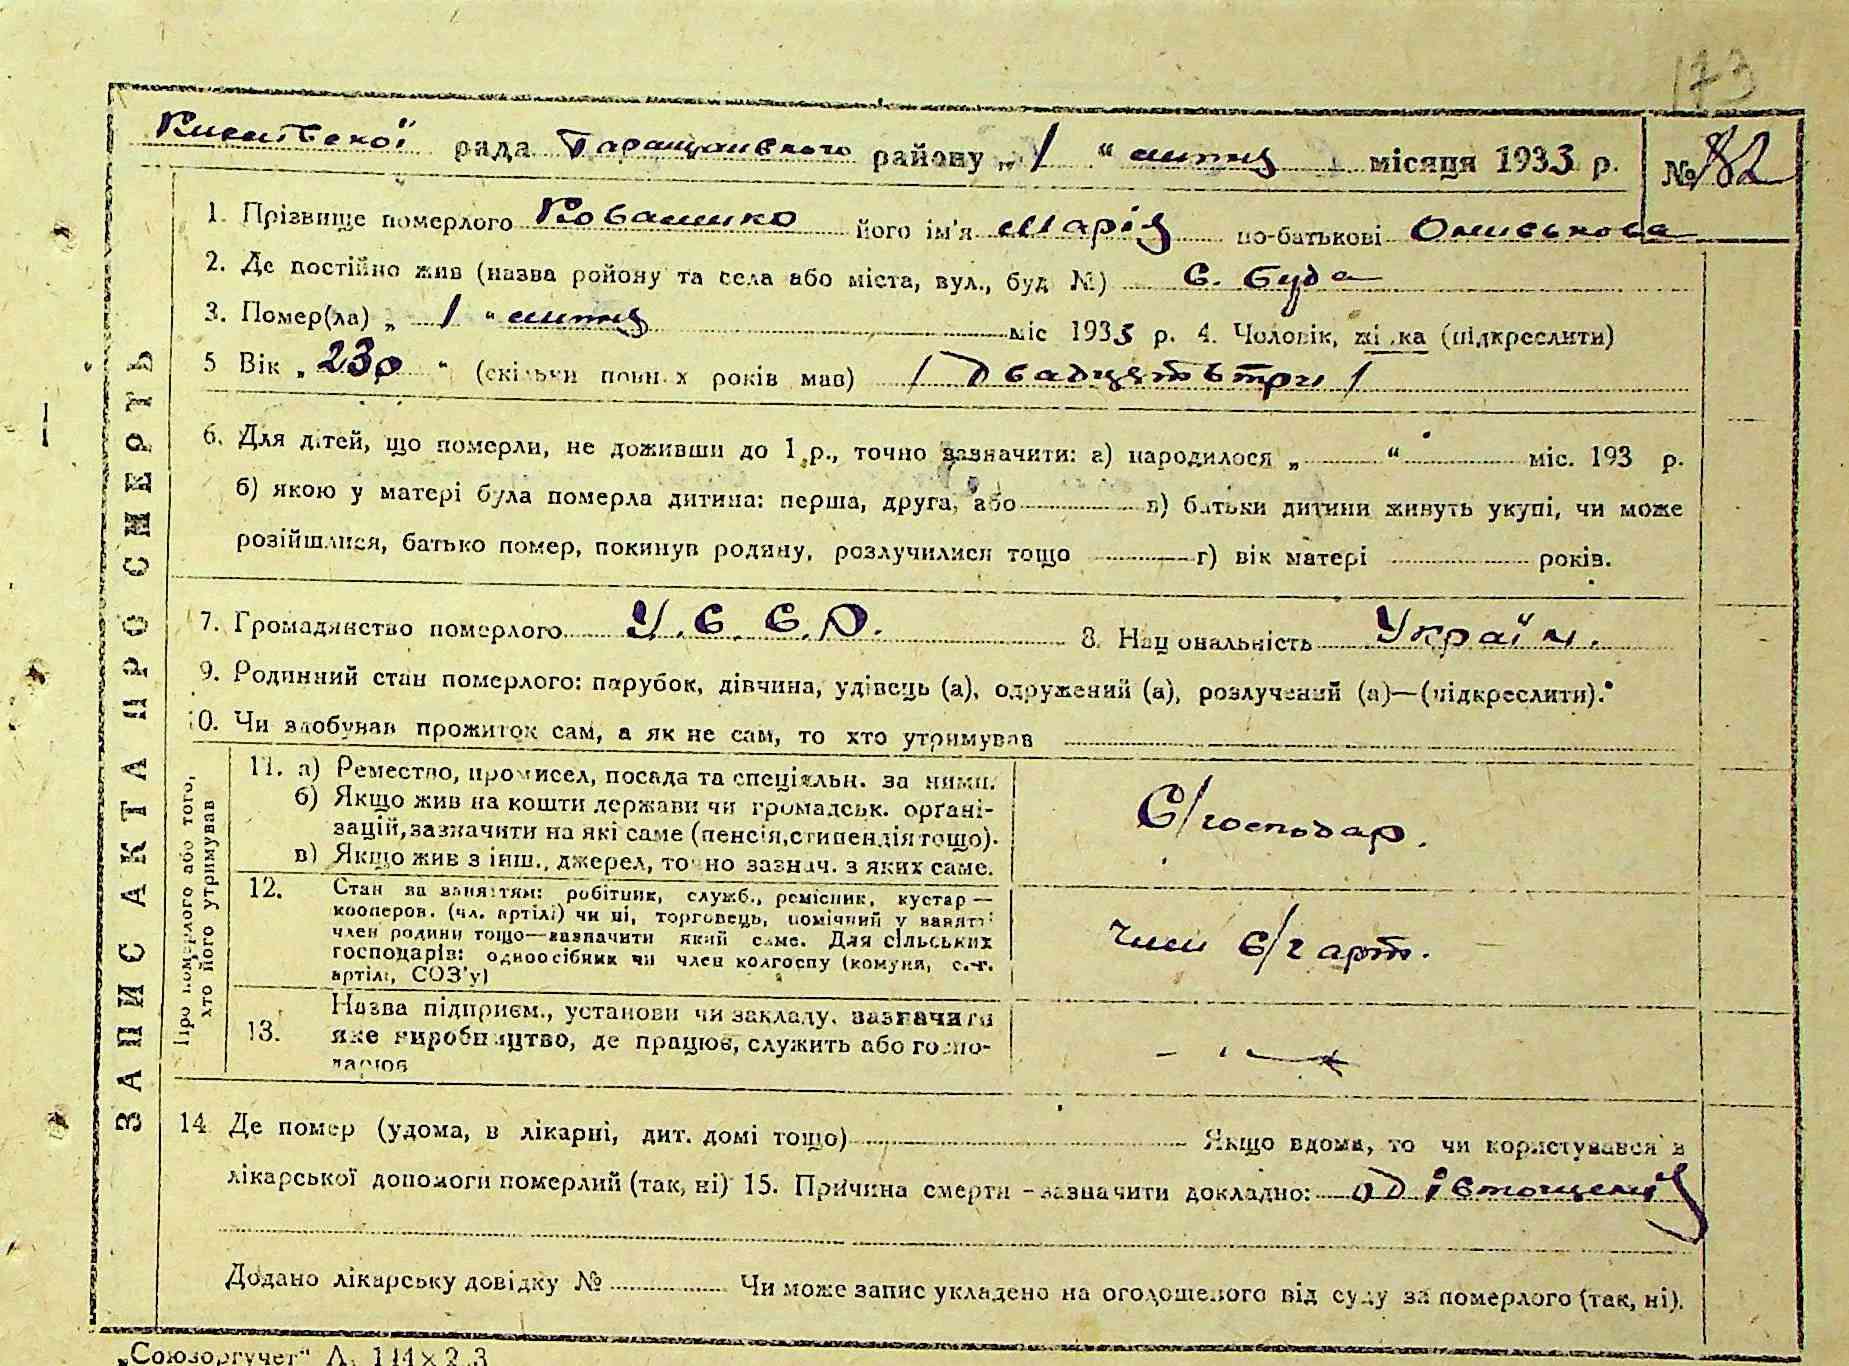 173
рада Таращанського району „ 1 “ липня місяця 1933 р. № 82
1. Прізвище померлого його ім'я Марія по-батькові
2. Де постійно жив (назва ройону та села або міста, вул., буд №) с. Буда
3. Помер(ла) „ 1 “ липня міс 1933 р. 4. Чоловік, жі ка (підкреслити)
5 Вік „ 23р “ (скільки повних років мав) / Двадцять три /
6. Для дітей, що померли, не доживши до 1 р., точно зазначити: а) народилося „ “ міс. 193 р.
б) якою у матері була померла дитина: перша, друга, або в) батьки дитини живуть укупі, чи може
розійшлися, батько помер, покинув родину, розлучилися тощо г) вік матері років.
7. Громадянство померлого У.С.С.Р. 8. Нац ональність Україн.
9. Родинний стан померлого: парубок, дівчина, удівець (а), одружений (а), розлучений (а)—(підкреслити).
10. Чи здобував прожиток сам, а як не сам, то хто утримував
11. а) Ремество, промисел, посада та спеціяльн. за ними.
б) Якщо жив на кошти держави чи громадськ. органі-
зацій, зазначити на які саме (пенсія, стипендія тощо).
в) Якщо жив з інш., джерел, точно зазнач. з яких саме.
С/господар.
12. Стан за заняттям: робітник, служб., ремісник, кустар—
кооперов. (чл. артілі) чи ні, торговець, помічний у занятті
член родини тощо—зазначити який саме. Для сільських
господарів: одноосібник чи член колгоспу (комуни, с.-г.
артілі, СОЗ'у)
член с/г арт.
13. Назва підприєм., установи чи закладу. зазначити
яке виробництво, де працює, служить або госпо-
дарює
Про померлого або того,
хто його утримував
14 Де помер (удома, в лікарні, дит. домі тощо) Якщо вдома, то чи користувався з
лікарської допомоги померлий (так, ні) 15. Причина смерти - зазначити докладно: од істощения
Додано лікарську довідку № Чи може запис укладено на оголошеного від суду за померлого (так, ні).
ЗАПИС АКТА ПРО СМЕРТЬ
„Союзоргучет“ Л. 114×2 3